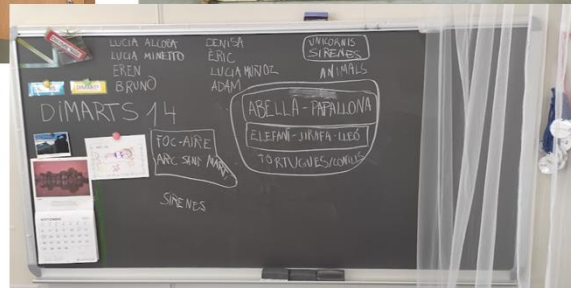 LUCIA ALCOBA
LUCIA MINETTO
EREN
BRUNO
DENISA
ERIC
LUCIA MUÑOZ
ADAM
UNICORNIS
SIRENES
ANIMALS
DIMARTS 14
FOC-AIRE
ARC SANT MARTÍ
SIRENES
ABELLA-PAPALLONA
ELEFANT-JIRAFA-LLEÓ
TORTUGUES/CONILLS